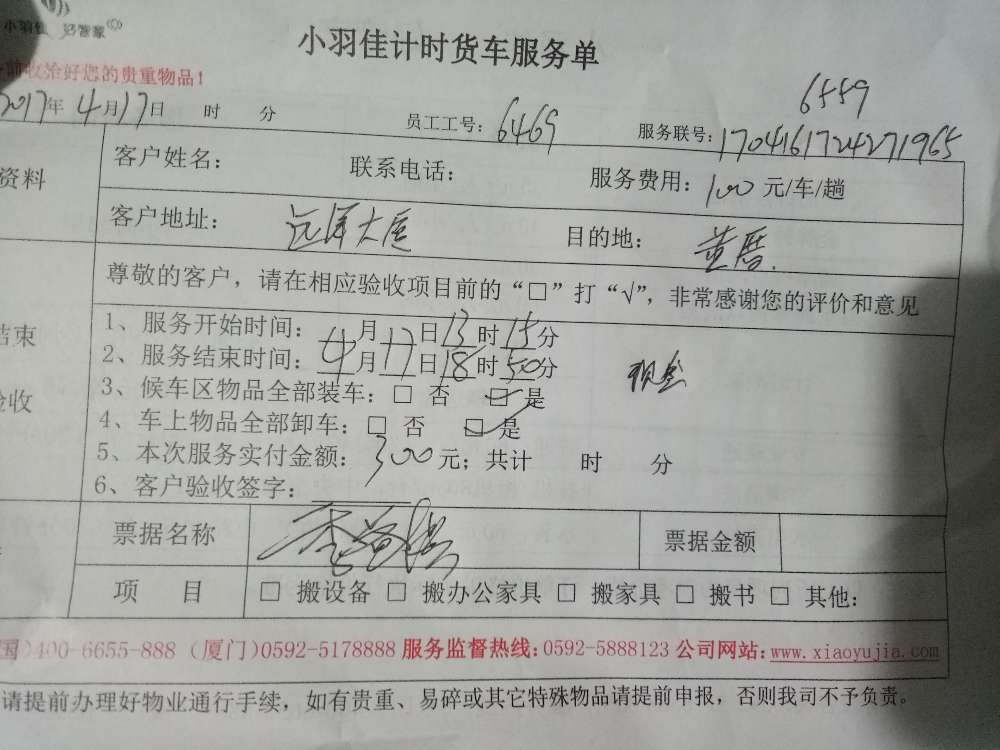 小羽佳 好管家
小羽佳计时货车服务单
前收洽好您的贵重物品！
6559
2017年 4月17日 时 分 员工工号：6469 服务联号：1704161724271965
资料
客户姓名： 联系电话： 服务费用：100元/车/趟
客户地址：远洋大厦 目的地：黄厝.
尊敬的客户，请在相应验收项目前的“□”打“√”，非常感谢您的评价和意见
结束
验收
1、服务开始时间：4月17日13时15分
2、服务结束时间：4月17日18时50分 现金
3、候车区物品全部装车：□ 否 ☑ 是
4、车上物品全部卸车：□ 否 ☑ 是
5、本次服务实付金额：300元；共计 时 分
6、客户验收签字：
票据名称 票据金额
项 目 □ 搬设备 □ 搬办公家具 □ 搬家具 □ 搬书 □ 其他：
国)400-6655-888（厦门)0592-5178888 服务监督热线：0592-5888123 公司网站：www.xiaoyujia.com
请提前办理好物业通行手续，如有贵重、易碎或其它特殊物品请提前申报，否则我司不予负责。